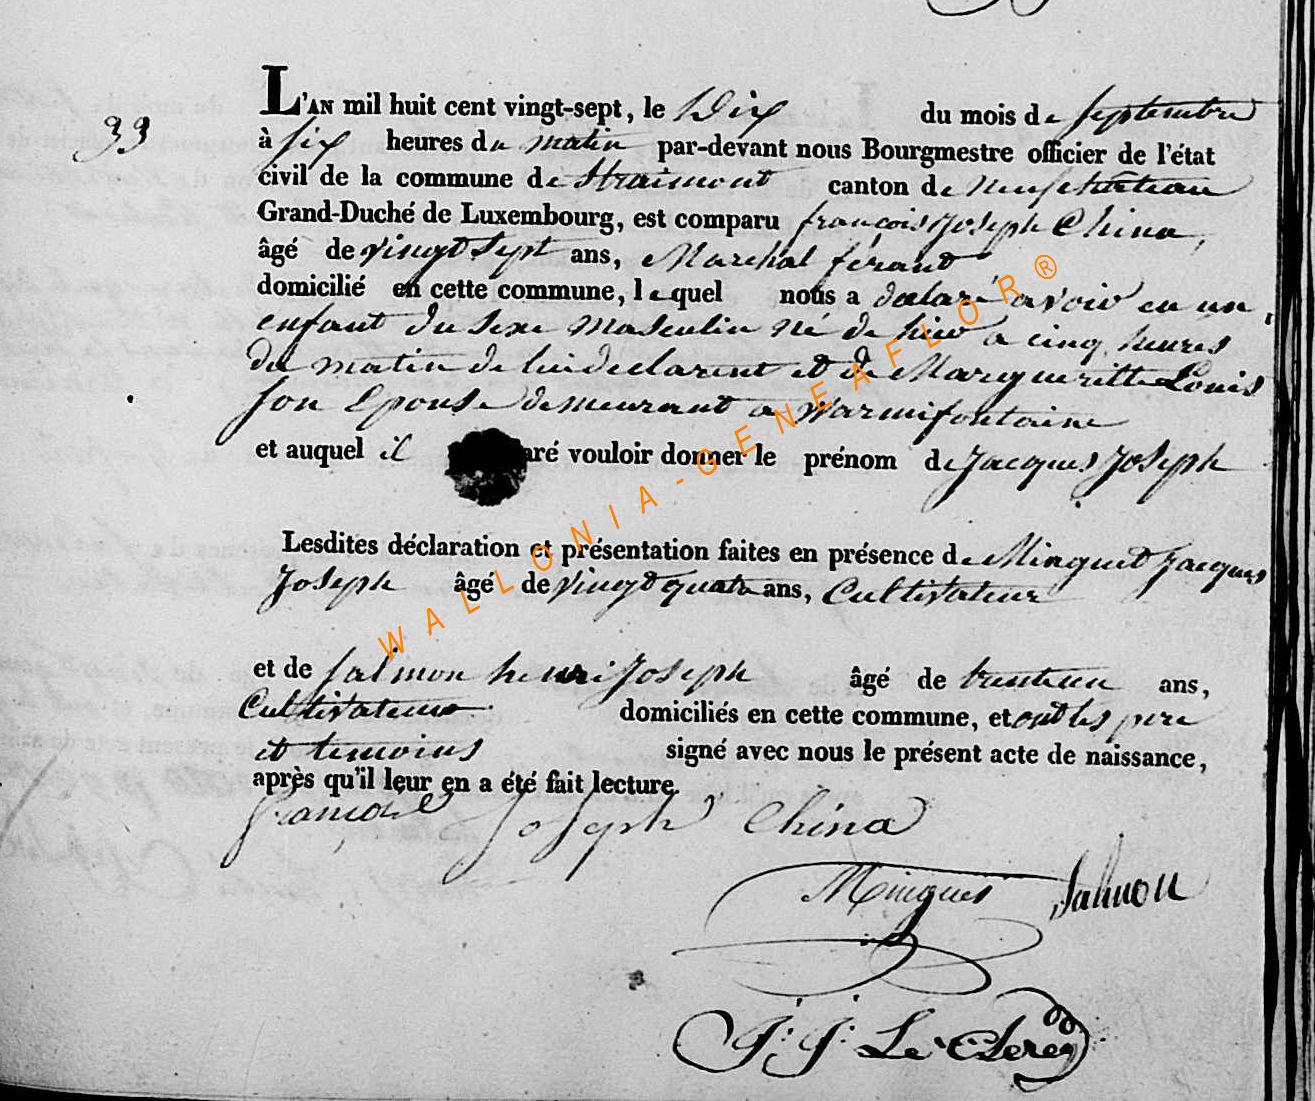 33
L'AN mil huit cent vingt-sept, le Dix du mois de septembre
à six heures du matin par-devant nous Bourgmestre officier de l'état
civil de la commune de Straimont canton de neufchâteau
Grand-Duché de Luxembourg, est comparu françois Joseph China,
âgé de vingt sept ans, Marchal férant
domicilié en cette commune, lequel nous a declaré avoir eu un
enfant du sexe masculin né de hier a cinq heures
du matin de lui declarent et de Margueritte Louis
son Epouse demeurant a Warmifontaine
et auquel il aré vouloir donner le prénom de Jacques Joseph
Lesdites déclaration et présentation faites en présence de Minguet Jacques
Joseph âgé de vingt quatre ans, Cultivateur
et de salmon henri Joseph âgé de ans,
Cultivateur domiciliés en cette commune, et ont les pere
et temoins signé avec nous le présent acte de naissance,
après qu'il leur en a été fait lecture.
françois Joseph China
Minguet Salmon
J. J. Le Clerc
WALLONIA-GENEAFLOR®